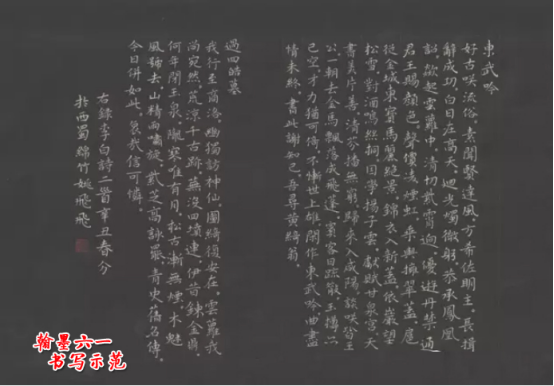 東武吟
好古咲流俗素聞賢達風方希佐明主長揖
辭成功白日在高天迴光燭微躬恭承鳳凰
詔欻起雲蘿中清切紫霄迥優遊丹禁通
君王賜顏色聲價凌煙虹乘輿擁翠蓋扈
從金城東寶馬麗絕景錦衣入新豐依巖望
松雪對酒鳴絲桐因學揚子雲獻賦甘泉宮天
書美片善清芬播無窮歸來入咸陽談笑皆王
公一朝去金馬飄落成飛蓬賓客日疏散玉樽亦
已空才力猶可倚不慚世上雄閒作東武吟曲盡
情未終書此謝知己吾尋黃綺翁
過四皓墓
我行至商洛幽獨訪神仙園綺復安在雲蘿
尚宛然荒涼千古跡蕪沒四墳連伊昔鍊金鼎
何年閉玉泉隴寒唯有月松古漸無煙木魅
風號去山精雨嘯旋紫芝高詠罷青史舊名傳
今日併如此哀哉信可憐
右錄李白詩二首辛丑春分
於西蜀綿竹姚飛飛
翰墨六一
书写示范